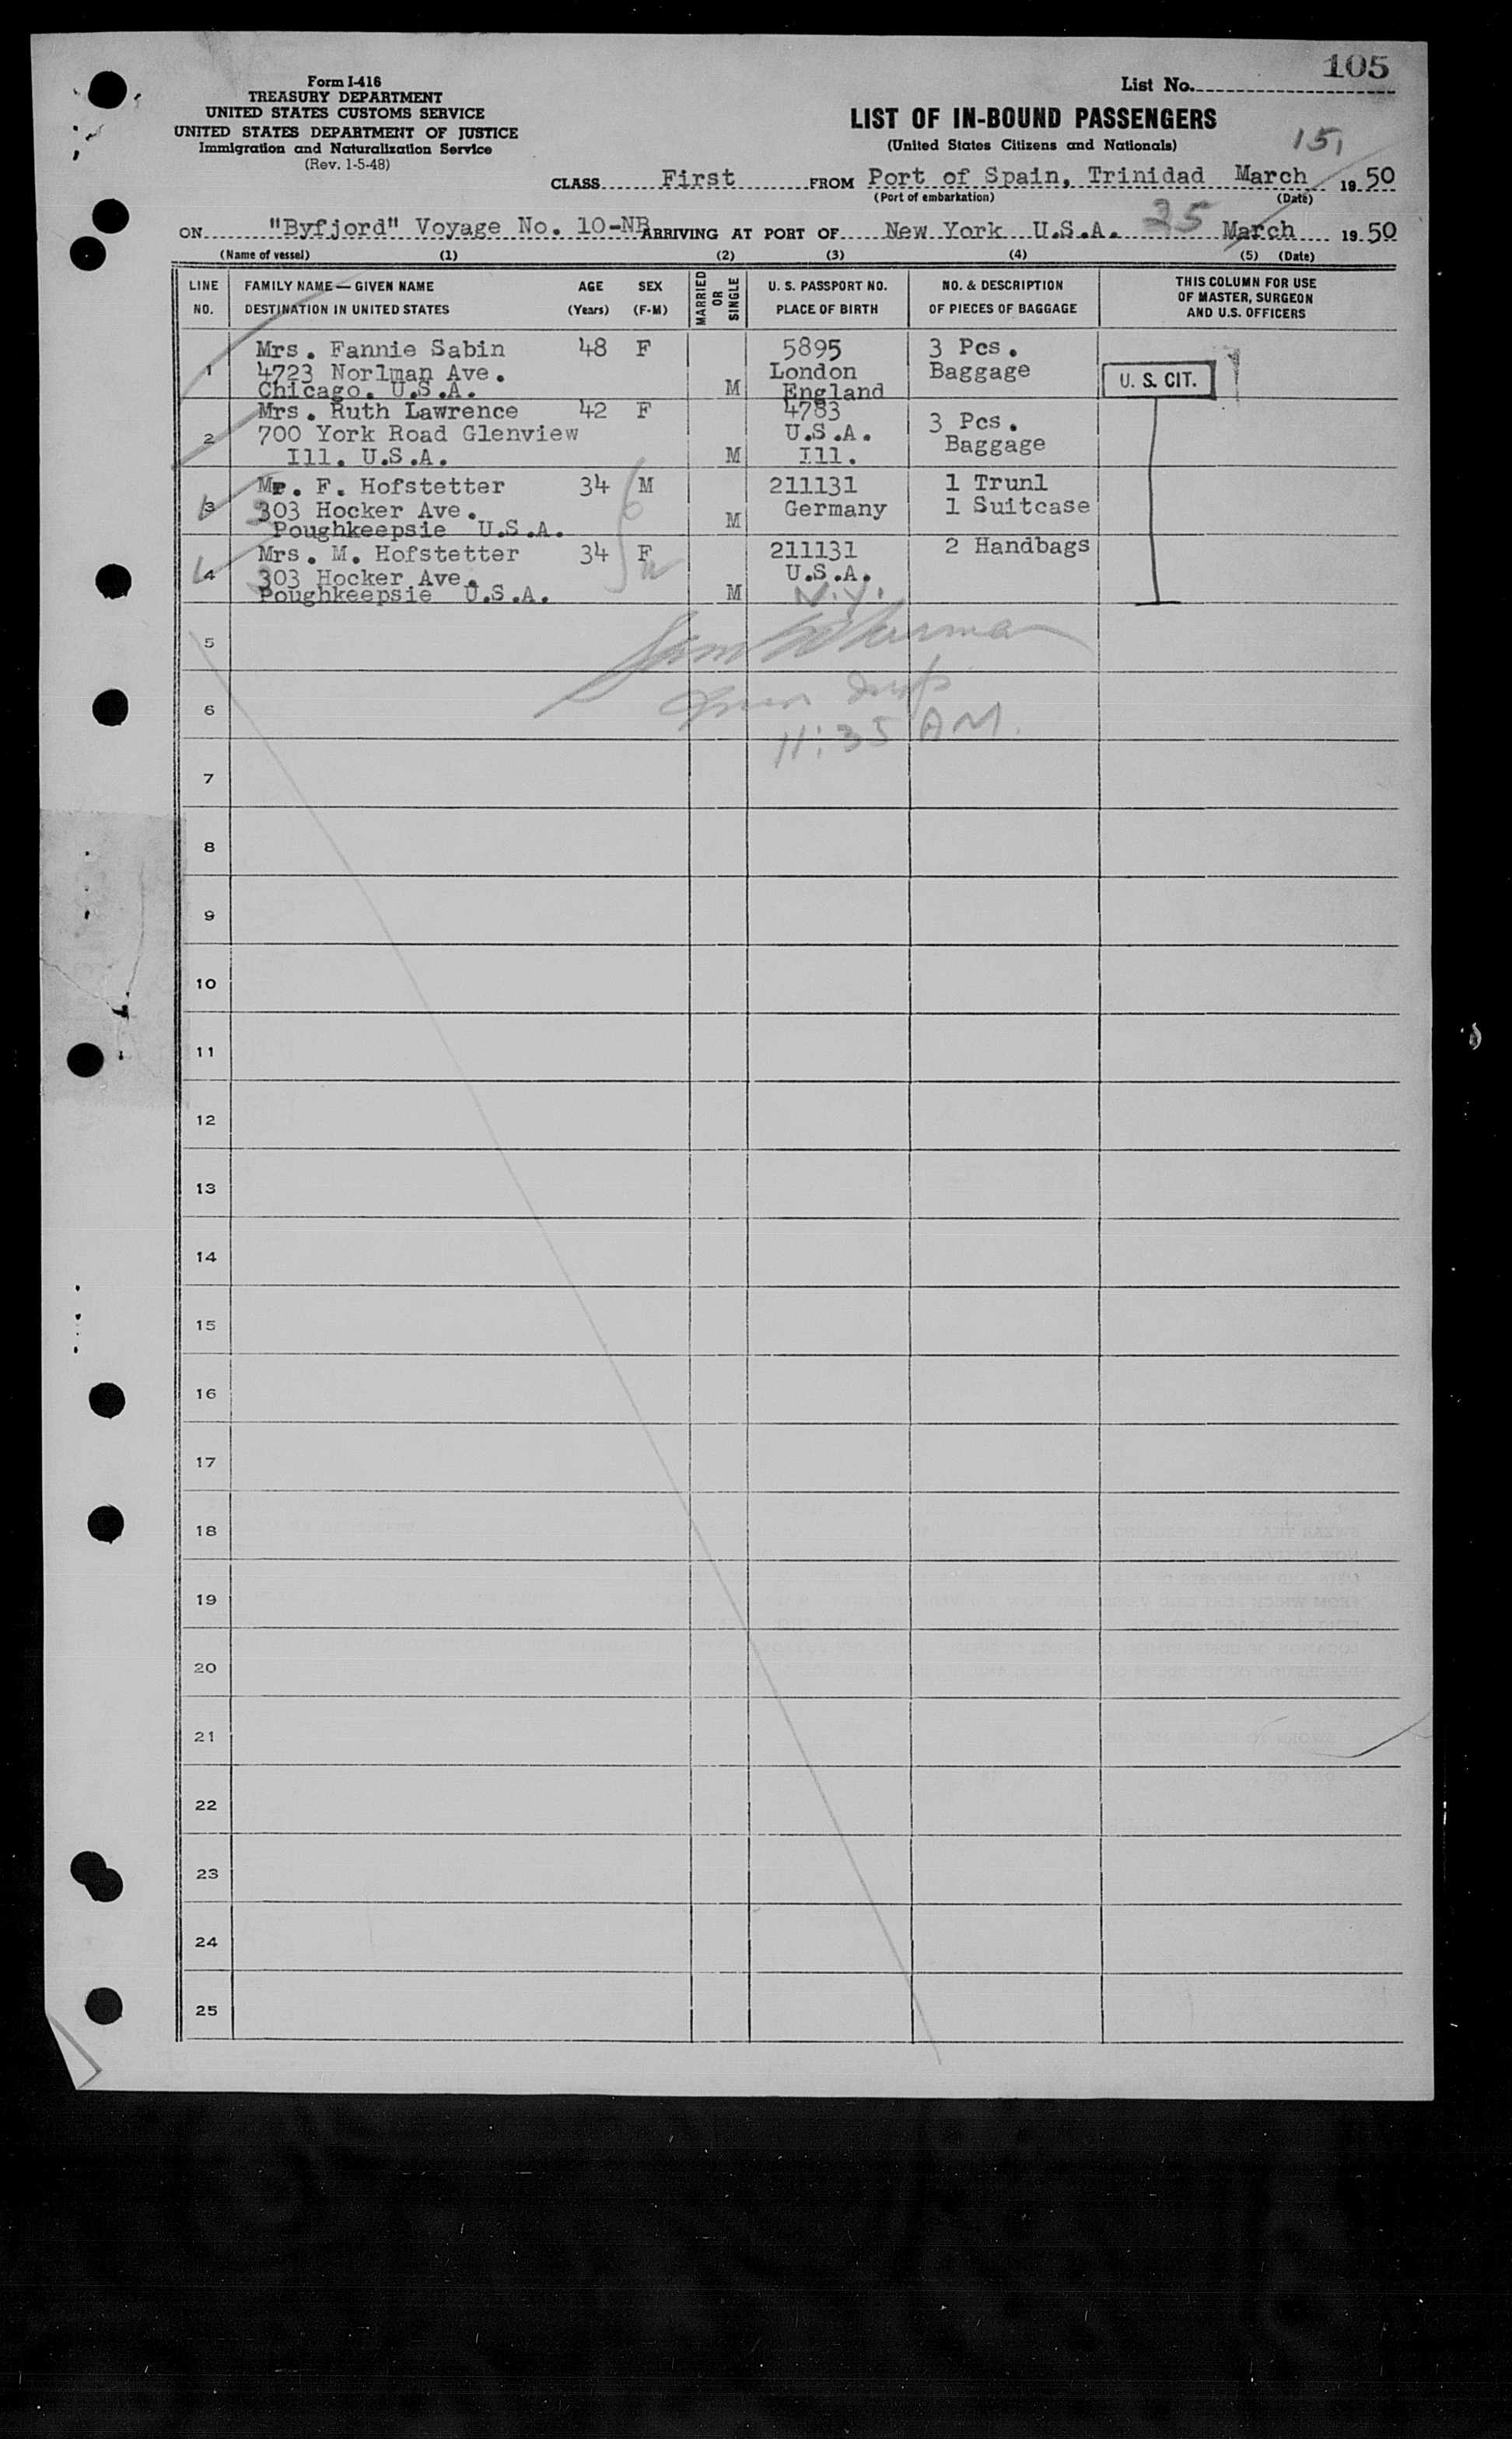 105
Form I-416
TREASURY DEPARTMENT
UNITED STATES CUSTOMS SERVICE
UNITED STATES DEPARTMENT OF JUSTICE
Immigration and Naturalization Service
(Rev. 1-5-48)
List No.
LIST OF IN-BOUND PASSENGERS
(United States Citizens and Nationals)
15,
CLASS First FROM Port of Spain, Trinidad March 1950
(Port of embarkation) (Date)
ON "Byfjord" Voyage No. 10-NB ARRIVING AT PORT OF New York U.S.A. 25 March 1950
(Name of vessel) (1) (2) (3) (4) (5) (Date)
LINE NO.
FAMILY NAME — GIVEN NAME
DESTINATION IN UNITED STATES
AGE (Years)
SEX (F-M)
MARRIED OR SINGLE
U. S. PASSPORT NO.
PLACE OF BIRTH
NO. & DESCRIPTION
OF PIECES OF BAGGAGE
THIS COLUMN FOR USE
OF MASTER, SURGEON
AND U.S. OFFICERS
Mrs. Fannie Sabin 48 F 5895 3 Pcs.
1 4723 Norlman Ave. London Baggage U. S. CIT.
Chicago. U.S.A. M England
Mrs. Ruth Lawrence 42 F 4783 3 Pcs.
2 700 York Road Glenview U.S.A. Baggage
Ill. U.S.A. M Ill.
Mr. F. Hofstetter 34 M 211131 1 Trunl
3 303 Hocker Ave. Germany 1 Suitcase
Poughkeepsie U.S.A. M
Mrs. M. Hofstetter 34 F 211131 2 Handbags
4 303 Hocker Ave. U.S.A.
Poughkeepsie U.S.A. M N.Y.
5
6
11:35 AM.
7
8
9
10
11
12
13
14
15
16
17
18
19
20
21
22
23
24
25